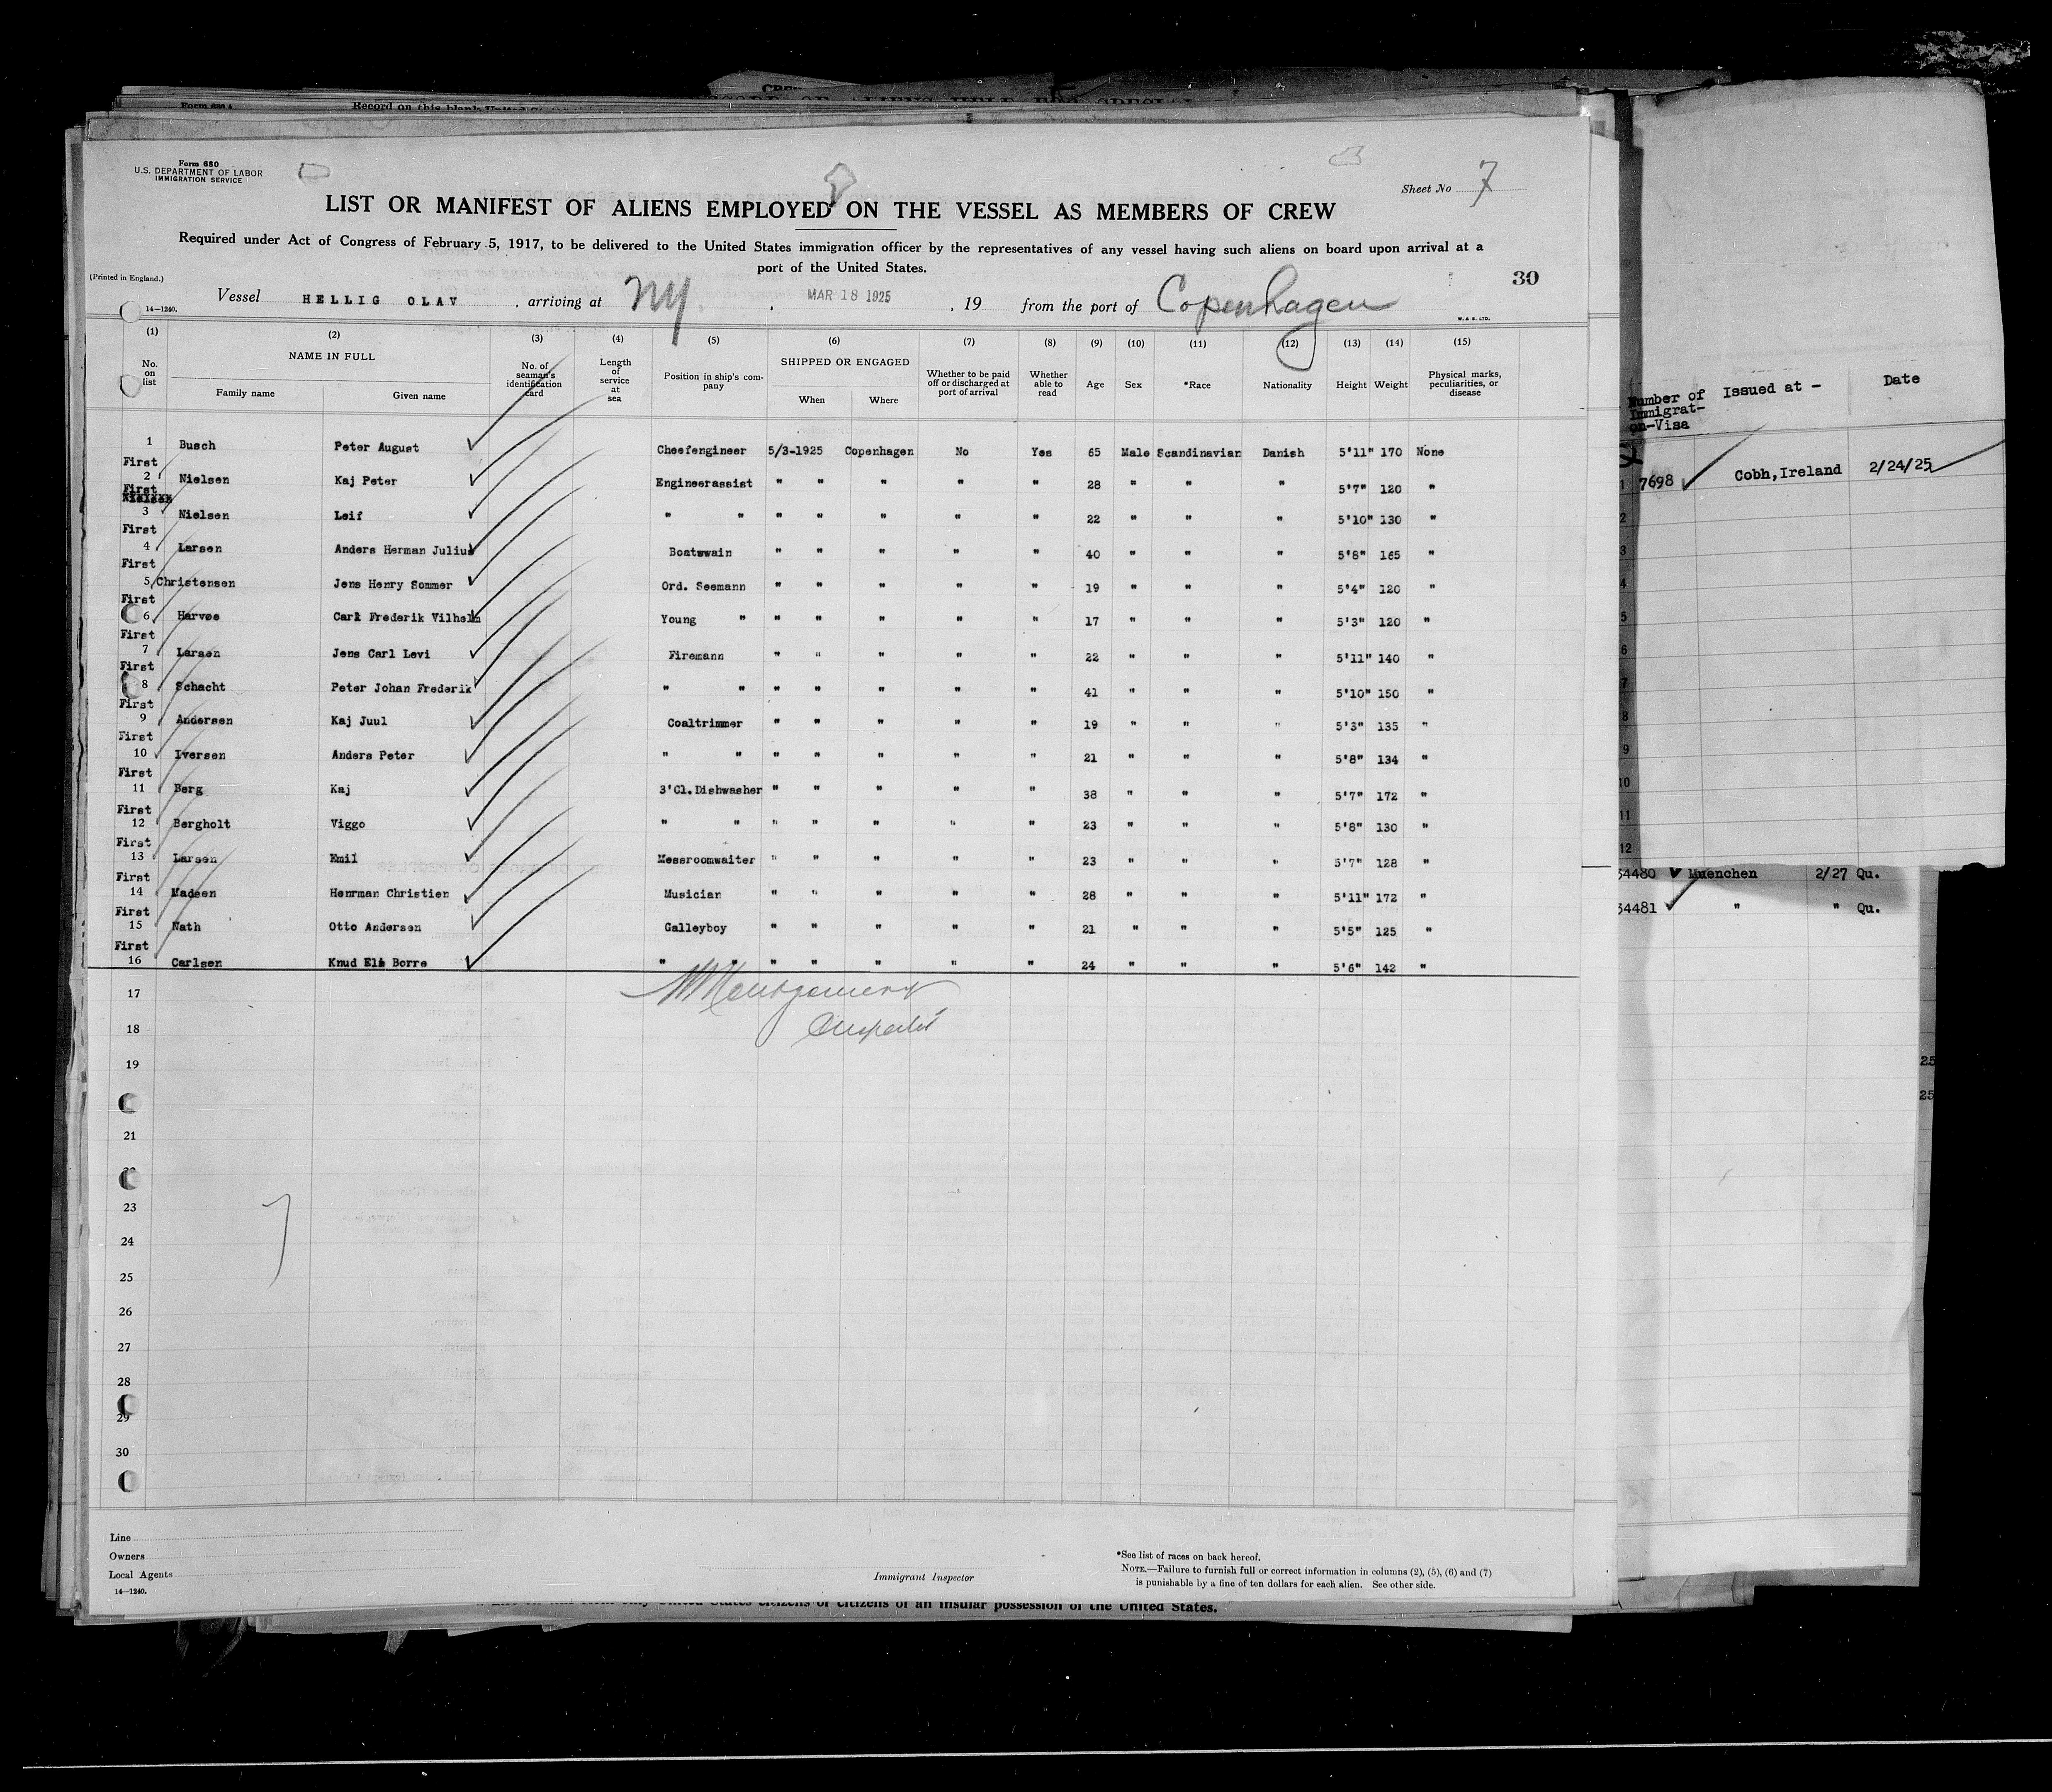 Form 680 A
Record on this blank United
Form 680
U.S. DEPARTMENT OF LABOR
IMMIGRATION SERVICE
Sheet No 7
LIST OR MANIFEST OF ALIENS EMPLOYED ON THE VESSEL AS MEMBERS OF CREW
Required under Act of Congress of February 5, 1917, to be delivered to the United States immigration officer by the representatives of any vessel having such aliens on board upon arrival at a
port of the United States.
(Printed in England.)
30
Vessel HELLIG OLAV , arriving at NY. , MAR 18 1925 , 19 from the port of Copenhagen
14—1240.
W. & S. LTD.
(1) (2) (3) (4) (5) (6) (7) (8) (9) (10) (11) (12) (13) (14) (15)
No. on list NAME IN FULL Family name Given name No. of seaman's identification card Length of service at sea Position in ship's company SHIPPED OR ENGAGED When Where Whether to be paid off or discharged at port of arrival Whether able to read Age Sex *Race Nationality Height Weight Physical marks, peculiarities, or disease
1 Busch Peter August Cheefengineer 5/3-1925 Copenhagen No Yes 65 Male Scandinavian Danish 5'11" 170 None
First
2 Nielsen Kaj Peter Engineerassist " " " " " 28 " " " 5'7" 120 "
First
3 Nielsen Leif " " " " " " " 22 " " " 5'10" 130 "
First
4 Larsen Anders Herman Julius Boatswain " " " " " 40 " " " 5'8" 165 "
First
5 Christensen Jens Henry Sommer Ord. Seemann " " " " " 19 " " " 5'4" 120 "
First
6 Harvøe Carl Frederik Vilhelm Young " " " " " " 17 " " " 5'3" 120 "
First
7 Larsen Jens Carl Levi Firemann " " " " " 22 " " " 5'11" 140 "
First
8 Schacht Peter Johan Frederik " " " " " " " 41 " " " 5'10" 150 "
First
9 Andersen Kaj Juul Coaltrimmer " " " " " 19 " " " 5'3" 135 "
First
10 Iversen Anders Peter " " " " " " " 21 " " " 5'8" 134 "
First
11 Berg Kaj 3'Cl.Dishwasher " " " " " 38 " " " 5'7" 172 "
First
12 Bergholt Viggo " " " " " " " 23 " " " 5'8" 130 "
First
13 Larsen Emil Messroomwaiter " " " " " 23 " " " 5'7" 128 "
First
14 Madsen Henrman Christien Musician " " " " " 28 " " " 5'11" 172 "
First
15 Nath Otto Andersen Galleyboy " " " " " 21 " " " 5'5" 125 "
First
16 Carlsen Knud Borre " " " " " " " 24 " " " 5'6" 142 "
17
Montgomery
18
19
21
23
24
25
26
27
28
29
30
Line
Owners
Local Agents
14—1240.
Immigrant Inspector
*See list of races on back hereof.
NOTE.—Failure to furnish full or correct information in columns (2), (5), (6) and (7)
is punishable by a fine of ten dollars for each alien. See other side.
citizens or citizens of an insular possession of the United States.
Number of Immigrat-on-Visa Issued at - Date
1 7698 Cobh,Ireland 2/24/25
2
3
4
5
6
7
8
9
10
11
12
34480 Muenchen 2/27 Qu.
34481 " " Qu.
25
25